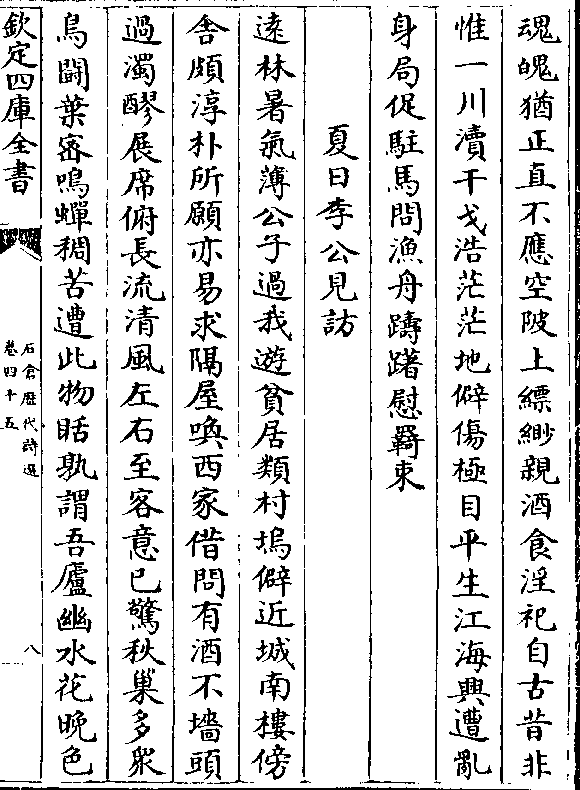 魂魄猶正直不應空陂上縹緲親酒食淫祀自古昔非
惟一川瀆干戈浩茫茫地僻傷極目平生江海興遭亂
身局促駐馬問漁舟躊躇慰羇束
夏日李公見訪
遠林暑氣薄公子過我遊貧居類村塢僻近城南樓傍
舎頗淳朴所願亦易求隔屋喚西家借問有酒不墻頭
過濁醪展席俯長流清風左右至客意已驚秋巢多衆
鳥鬪葉宻鳴蟬稠苦遭此物聒孰謂吾廬幽水花晚色
欽定四庫全書
石倉歷代詩選
卷四十五
八